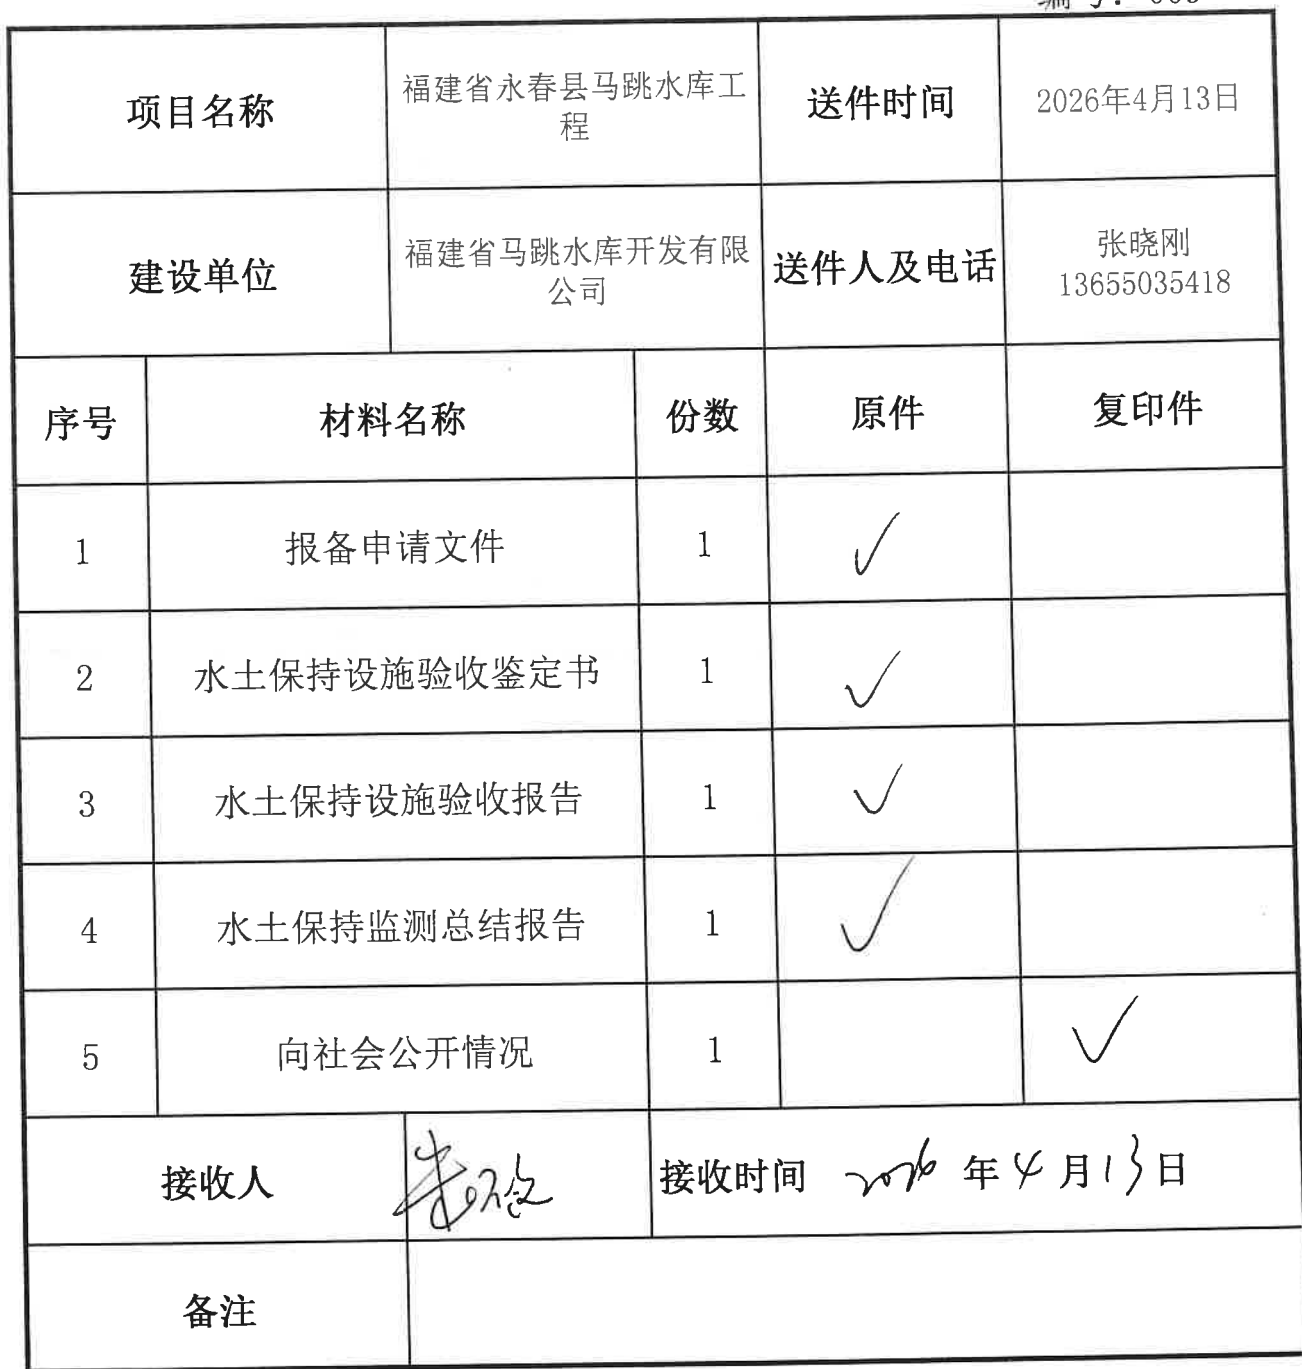 项目名称
福建省永春县马跳水库工
程
送件时间
2026年4月13日
建设单位
福建省马跳水库开发有限
公司
送件人及电话
张晓刚
13655035418
序号 材料名称 份数 原件 复印件
1 报备申请文件 1 ✓
2 水土保持设施验收鉴定书 1 ✓
3 水土保持设施验收报告 1 ✓
4 水土保持监测总结报告 1 ✓
5 向社会公开情况 1 ✓
接收人
接收时间 2026年4月13日
备注